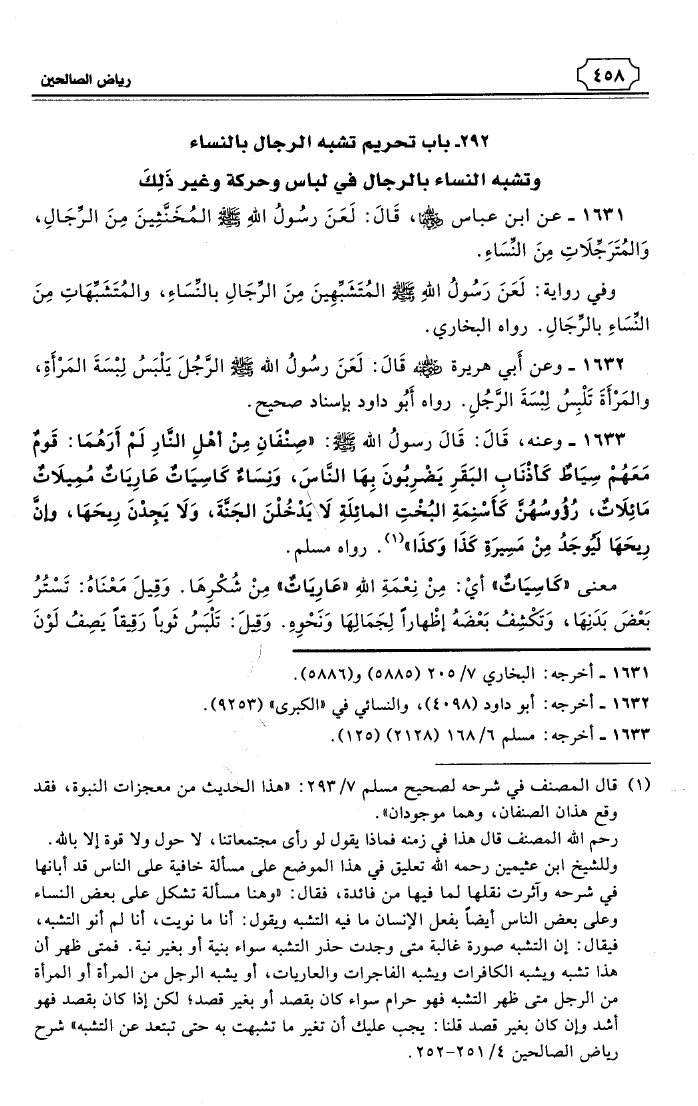 ٤٥٨
رياض الصالحين
٢٩٢ـ باب تحريم تشبه الرجال بالنساء
وتشبه النساء بالرجال في لباس وحركة وغير ذَلِكَ
١٦٣١ ـ عن ابن عباس ﵄، قَالَ: لَعَنَ رسُولُ اللهِ ﷺ المُخَنَّثِينَ مِنَ الرِّجَالِ،
وَالمُتَرَجِّلَاتِ مِنَ النِّسَاءِ.
وفي رواية: لَعَنَ رَسُولُ اللهِ ﷺ المُتَشَبِّهِينَ مِنَ الرِّجَالِ بالنِّسَاءِ، والمُتَشَبِّهَاتِ مِنَ
النِّسَاءِ بالرِّجَالِ. رواه البخاري.
١٦٣٢ ـ وعن أبي هريرة ﵁ قَالَ: لَعَنَ رسُولُ الله ﷺ الرَّجُلَ يَلْبَسُ لِبْسَةَ المَرْأَةِ،
والمَرْأَةَ تَلْبِسُ لِبْسَةَ الرَّجُلِ. رواه أَبُو داود بإسناد صحيح.
١٦٣٣ ـ وعنه، قَالَ: قَالَ رسولُ الله ﷺ: «صِنْفَانِ مِنْ أهْلِ النَّارِ لَمْ أرَهُمَا: قَومٌ
مَعَهُمْ سِيَاطٌ كَأذْنَابِ البَقَرِ يَضْرِبُونَ بِهَا النَّاسَ، وَنِسَاءٌ كَاسِيَاتٌ عَارِيَاتٌ مُمِيلَاتٌ
مَائِلَاتٌ، رُؤُوسُهُنَّ كَأسْنِمَةِ البُخْتِ المائِلَةِ لَا يَدْخُلْنَ الجَنَّةَ، وَلَا يَجِدْنَ رِيحَهَا، وإنَّ
رِيحَهَا لَيُوجَدُ مِنْ مَسِيرَةِ كَذَا وَكَذَا»(١). رواه مسلم.
معنى «كَاسِيَاتٌ» أيْ: مِنْ نِعْمَةِ اللهِ «عَارِيَاتٌ» مِنْ شُكْرِهَا. وَقِيلَ مَعْنَاهُ: تَسْتُرُ
بَعْضَ بَدَنِهَا، وَتَكْشِفُ بَعْضَهُ إظْهاراً لِجَمَالِهَا وَنَحْوِهِ. وَقِيلَ: تَلْبَسُ ثَوباً رَقِيقاً يَصِفُ لَوْنَ
١٦٣١ ـ أخرجه: البخاري ٢٠٥/٧ (٥٨٨٥) و(٥٨٨٦).
١٦٣٢ ـ أخرجه: أبو داود (٤٠٩٨)، والنسائي في «الكبرى» (٩٢٥٣).
١٦٣٣ ـ أخرجه: مسلم ١٦٨/٦ (٢١٢٨) (١٢٥).
(١) قال المصنف في شرحه لصحيح مسلم ٢٩٣/٧: «هذا الحديث من معجزات النبوة، فقد
وقع هذان الصنفان، وهما موجودان».
رحم الله المصنف قال هذا في زمنه فماذا يقول لو رأى مجتمعاتنا، لا حول ولا قوة إلا بالله.
وللشيخ ابن عثيمين رحمه الله تعليق في هذا الموضع على مسألة خافية على الناس قد أبانها
في شرحه وآثرت نقلها لما فيها من فائدة، فقال: «وهنا مسألة تشكل على بعض النساء
وعلى بعض الناس أيضاً بفعل الإنسان ما فيه التشبه ويقول: أنا ما نويت، أنا لم أنو التشبه،
فيقال: إن التشبه صورة غالبة متى وجدت حذر التشبه سواء بنية أو بغير نية. فمتى ظهر أن
هذا تشبه ويشبه الكافرات ويشبه الفاجرات والعاريات، أو يشبه الرجل من المرأة أو المرأة
من الرجل متى ظهر التشبه فهو حرام سواء كان بقصد أو بغير قصد؛ لكن إذا كان بقصد فهو
أشد وإن كان بغير قصد قلنا: يجب عليك أن تغير ما تشبهت به حتى تبتعد عن التشبه» شرح
رياض الصالحين ٤/ ٢٥١-٢٥٢.